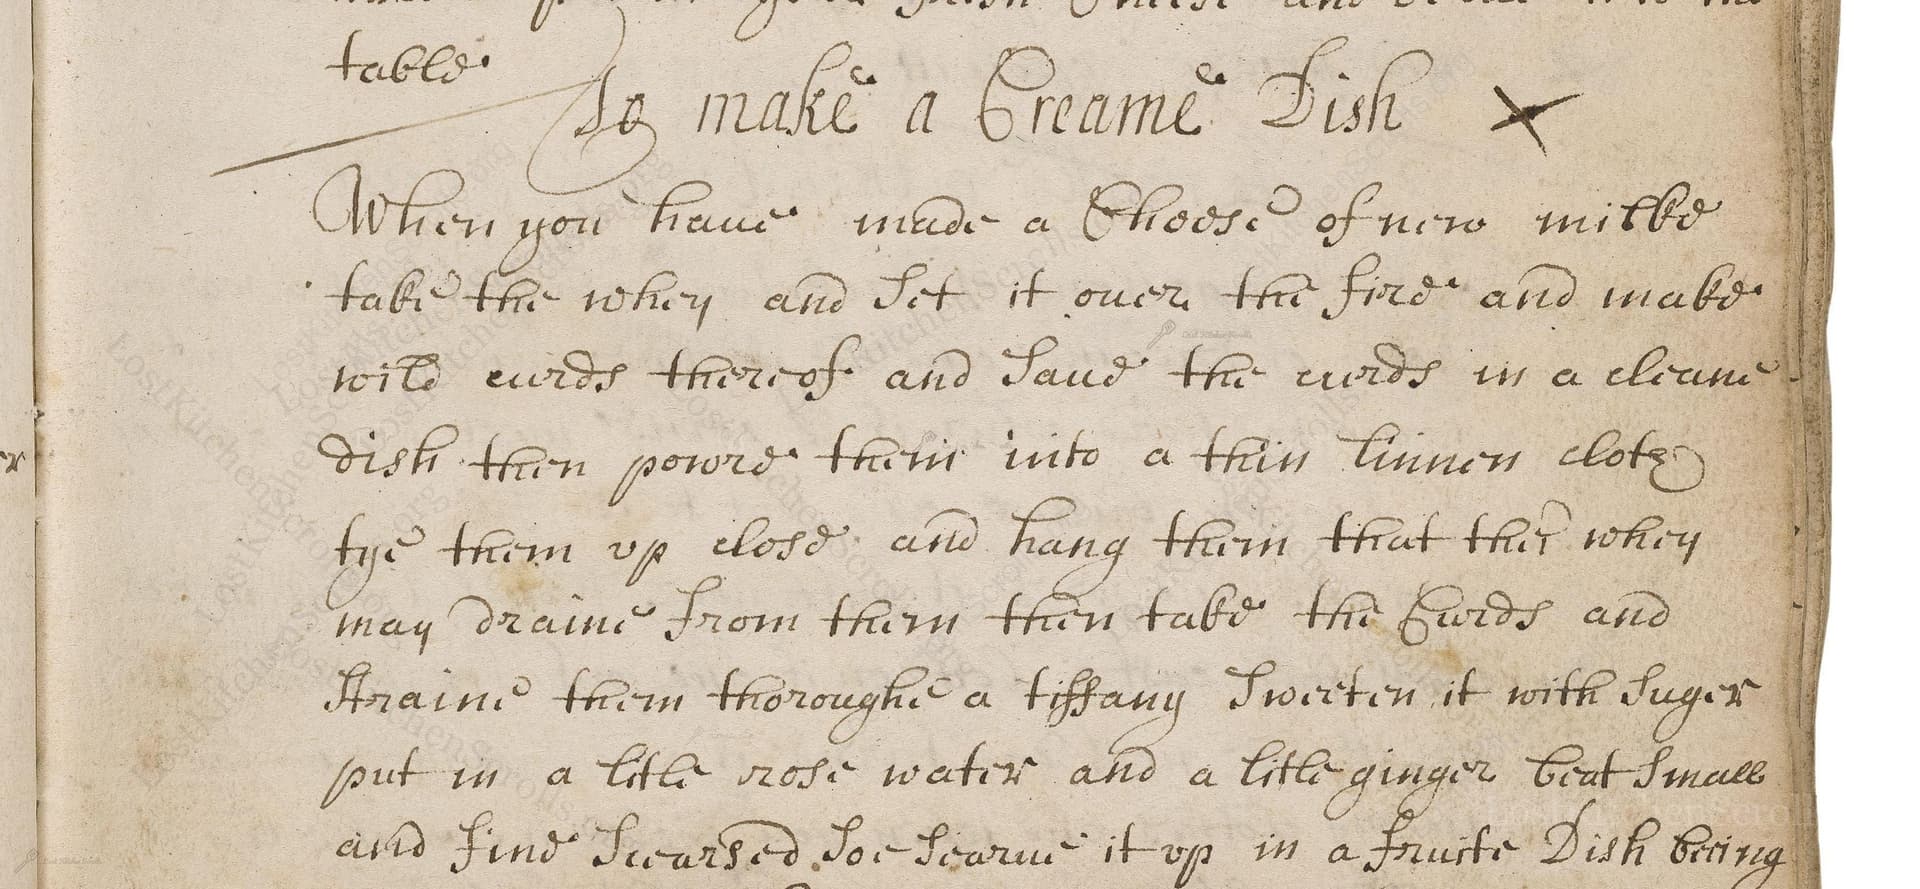 table
To make a Creame Dish
When you have made a Cheese of new milke
take the whey and set it ouer the fire and make
wild curds thereof and saue the curds in a cleane
dish then powre them into a thin linnen cloth
tye them vp close and hang them that their whey
may draine from them then take the Curds and
straine them thoroughe a tiffany sweeten it with suger
put in a litle rose water and a litle ginger beat small
and fine scearsed soe searue it vp in a fruite Dish being